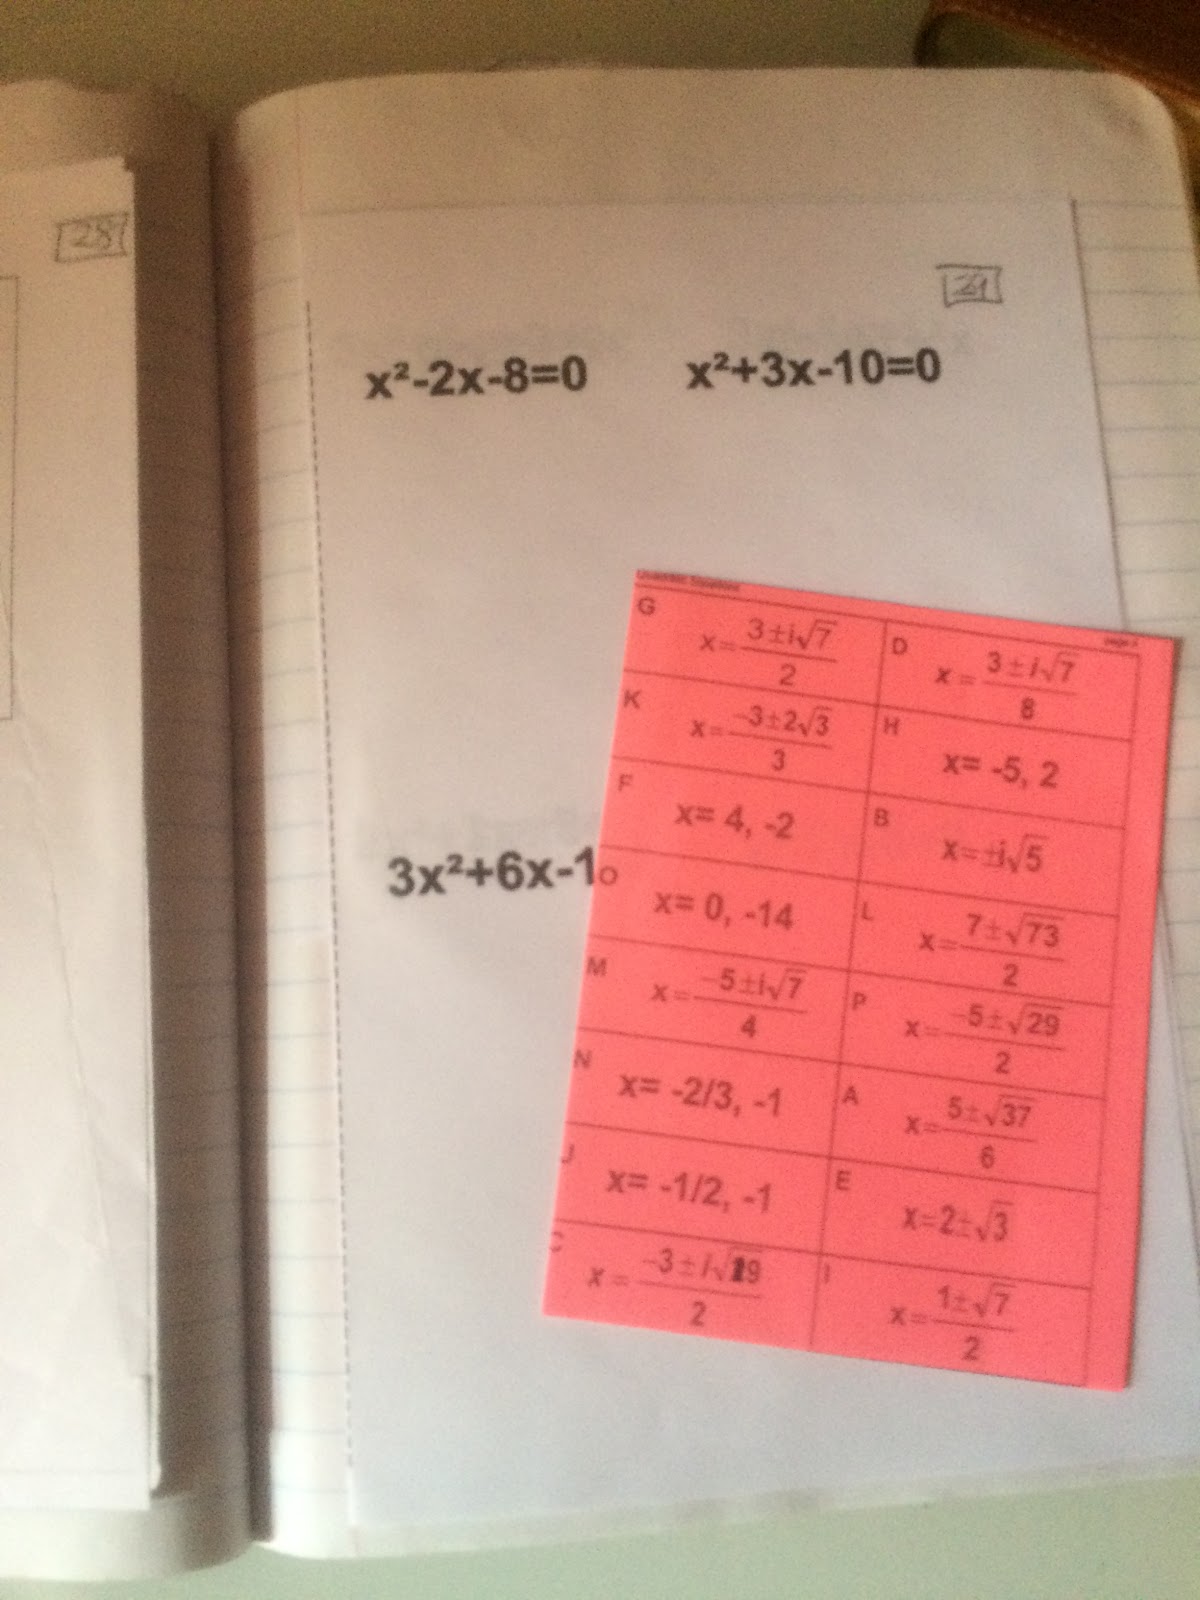 28
29
x²-2x-8=0 x²+3x-10=0
3x²+6x-1
Quadratic Equations
page 2
G x=(3±i√7)/2 D x=(3±i√7)/8
K x=(-3±2√3)/3 H x= -5, 2
F x= 4, -2 B x=±i√5
O x= 0, -14 L x=(7±√73)/2
M x=(-5±i√7)/4 P x=(-5±√29)/2
N x= -2/3, -1 A x=(5±√37)/6
J x= -1/2, -1 E x=2±√3
C x=(-3±i√19)/2 I x=(1±√7)/2